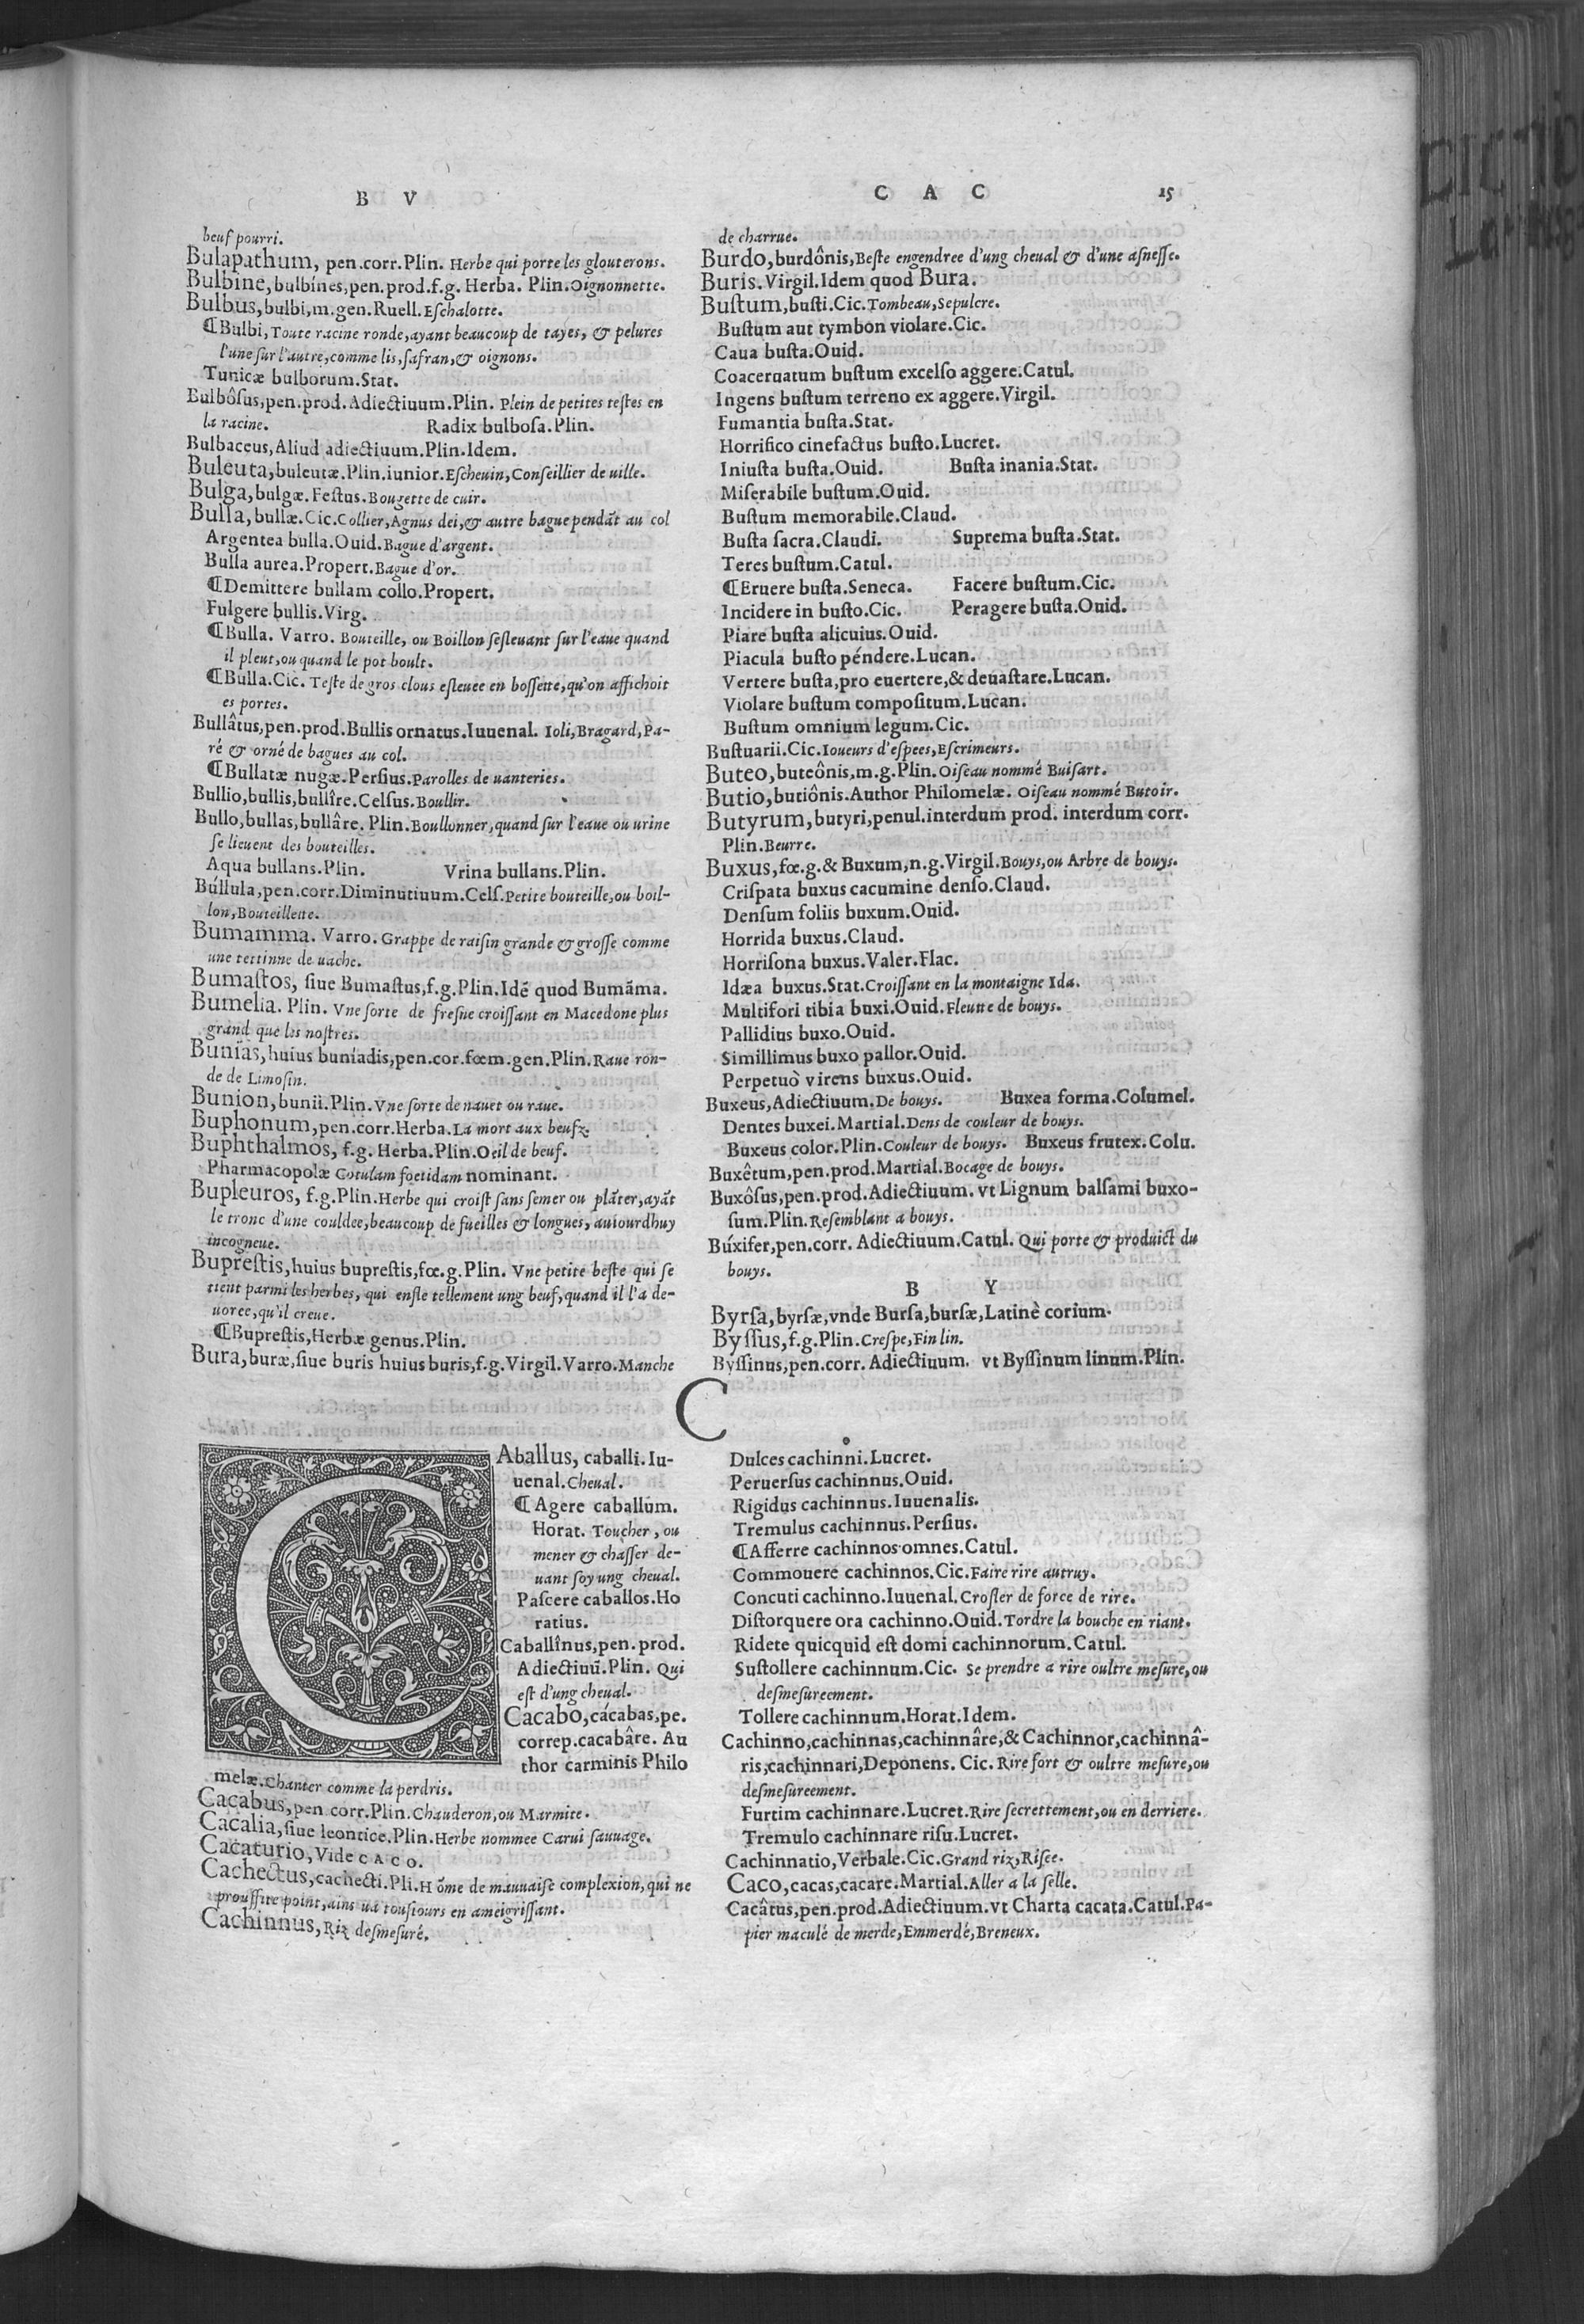 B V
beuf pourri.
Bulapathum, pen.corr.Plin. Herbe qui porte les glouterons.
Bulbine, bulbines, pen.prod.f.g. Herba. Plin. Oignonnette.
Bulbus, bulbi, m.gen. Ruell. Eſchalotte.
¶Bulbi, Toute racine ronde, ayant beaucoup de tayes, & pelures
l'une ſur l'autre, comme lis, ſafran, & oignons.
Tunicæ bulborum. Stat.
Bulbôſus, pen.prod. Adiectiuum. Plin. Plein de petites teſtes en
la racine. Radix bulboſa. Plin.
Bulbaceus, Aliud adiectiuum. Plin. Idem.
Buleuta, buleutæ. Plin.iunior. Eſcheuin, Conſeillier de uille.
Bulga, bulgæ. Feſtus. Bougette de cuir.
Bulla, bullæ. Cic. Collier, Agnus dei, & autre bague pendãt au col
Argentea bulla. Ouid. Bague d'argent.
Bulla aurea. Propert. Bague d'or.
¶Demittere bullam collo. Propert.
Fulgere bullis. Virg.
¶Bulla. Varro. Bouteille, ou Boillon ſeſleuant ſur l'eaue quand
il pleut, ou quand le pot boult.
¶Bulla. Cic. Teſte de gros clous eſleuee en boſſette, qu'on affichoit
es portes.
Bullâtus, pen.prod. Bullis ornatus. Iuuenal. Ioli, Bragard, Pa-
ré & orné de bagues au col.
¶Bullatæ nugæ. Perſius. Parolles de uanteries.
Bullio, bullis, bullîre. Celſus. Boullir.
Bullo, bullas, bullâre. Plin. Boullonner, quand ſur l'eaue ou urine
ſe lieuent des bouteilles.
Aqua bullans. Plin. Vrina bullans. Plin.
Búllula, pen.corr. Diminutiuum. Celſ. Petite bouteille, ou boil-
lon, Bouteillette.
Bumamma. Varro. Grappe de raiſin grande & groſſe comme
une tettinne de uache.
Bumaſtos, ſiue Bumaſtus, f.g. Plin. Idẽ quod Bumãma.
Bumelia. Plin. Vne ſorte de freſne croiſſant en Macedone plus
grand que les noſtres.
Bunías, huius buníadis, pen.cor.fœm.gen. Plin. Raue ron-
de de Limoſin.
Bunion, bunii. Plin. Vne ſorte de nauet ou raue.
Buphonum, pen.corr. Herba. La mort aux beufz.
Buphthalmos, f.g. Herba. Plin. Oeil de beuf.
Pharmacopolæ Cotulam foetidam nominant.
Bupleuros, f.g. Plin. Herbe qui croiſt ſans ſemer ou plãter, ayãt
le tronc d'une couldee, beaucoup de fueilles & longues, auiourdhuy
incogneue.
Bupreſtis, huius bupreſtis, fœ.g. Plin. Vne petite beſte qui ſe
tient parmi les herbes, qui enfle tellement ung beuf, quand il l'a de-
uoree, qu'il creue.
¶Bupreſtis, Herbæ genus. Plin.
Bura, buræ, ſiue buris huius buris, f.g. Virgil. Varro. Manche
C A C 15
de charrue.
Burdo, burdônis, Beſte engendree d'ung cheual & d'une aſneſſe.
Buris. Virgil. Idem quod Bura.
Buſtum, buſti. Cic. Tombeau, Sepulcre.
Buſtum aut tymbon violare. Cic.
Caua buſta. Ouid.
Coaceruatum buſtum excelſo aggere. Catul.
Ingens buſtum terreno ex aggere. Virgil.
Fumantia buſta. Stat.
Horrifico cinefactus buſto. Lucret.
Iniuſta buſta. Ouid. Buſta inania. Stat.
Miſerabile buſtum. Ouid.
Buſtum memorabile. Claud.
Buſta ſacra. Claudi. Suprema buſta. Stat.
Teres buſtum. Catul.
¶Eruere buſta. Seneca. Facere buſtum. Cic.
Incidere in buſto. Cic. Peragere buſta. Ouid.
Piare buſta alicuius. Ouid.
Piacula buſto péndere. Lucan.
Vertere buſta, pro euertere, & deuaſtare. Lucan.
Violare buſtum compoſitum. Lucan.
Buſtum omnium legum. Cic.
Buſtuarii. Cic. Ioueurs d'eſpees, Eſcrimeurs.
Buteo, buteônis, m.g. Plin. Oiſeau nommé Buiſart.
Butio, butiônis. Author Philomelæ. Oiſeau nommé Butoir.
Butyrum, butyri, penul.interdum prod. interdum corr.
Plin. Beurre.
Buxus, fœ.g. & Buxum, n.g. Virgil. Bouys, ou Arbre de bouys.
Criſpata buxus cacumine denſo. Claud.
Denſum foliis buxum. Ouid.
Horrida buxus. Claud.
Horriſona buxus. Valer. Flac.
Idæa buxus. Stat. Croiſſant en la montaigne Ida.
Multifori tibia buxi. Ouid. Fleutte de bouys.
Pallidius buxo. Ouid.
Simillimus buxo pallor. Ouid.
Perpetuò virens buxus. Ouid.
Buxeus, Adiectiuum. De bouys. Buxea forma. Columel.
Dentes buxei. Martial. Dens de couleur de bouys.
Buxeus color. Plin. Couleur de bouys. Buxeus frutex. Colu.
Buxêtum, pen.prod. Martial. Bocage de bouys.
Buxôſus, pen.prod. Adiectiuum. vt Lignum balſami buxo-
ſum. Plin. Reſemblant a bouys.
Búxifer, pen.corr. Adiectiuum. Catul. Qui porte & produict du
bouys.
B Y
Byrſa, byrſæ, vnde Burſa, burſæ, Latinè corium.
Byſſus, f.g. Plin. Creſpe, Fin lin.
Byſſinus, pen.corr. Adiectiuum. vt Byſſinum linum. Plin.
C
CAballus, caballi. Iu-
uenal. Cheual.
¶Agere caballum.
Horat. Toucher, ou
mener & chaſſer de-
uant ſoy ung cheual.
Paſcere caballos. Ho
ratius.
Caballînus, pen.prod.
Adiectiuũ. Plin. Qui
eſt d'ung cheual.
Cacabo, cácabas, pe.
correp. cacabâre. Au
thor carminis Philo
melæ. Chanter comme la perdris.
Cacabus, pen corr. Plin. Chauderon, ou Marmite.
Cacalia, ſiue leontice. Plin. Herbe nommee Carui ſauuage.
Cacaturio, Vide CACO.
Cachectus, cachecti. Pli. Hõme de mauuaiſe complexion, qui ne
prouffite point, ains ua touſiours en ameigriſſant.
Cachinnus, Riz deſmeſuré.
Dulces cachinni. Lucret.
Peruerſus cachinnus. Ouid.
Rigidus cachinnus. Iuuenalis.
Tremulus cachinnus. Perſius.
¶Afferre cachinnos omnes. Catul.
Commouere cachinnos. Cic. Faire rire autruy.
Concuti cachinno. Iuuenal. Croſler de force de rire.
Diſtorquere ora cachinno. Ouid. Tordre la bouche en riant.
Ridete quicquid eſt domi cachinnorum. Catul.
Suſtollere cachinnum. Cic. Se prendre a rire oultre meſure, ou
deſmeſureement.
Tollere cachinnum. Horat. Idem.
Cachinno, cachinnas, cachinnâre, & Cachinnor, cachinnâ-
ris, cachinnari, Deponens. Cic. Rire fort & oultre meſure, ou
deſmeſureement.
Furtim cachinnare. Lucret. Rire ſecrettement, ou en derriere.
Tremulo cachinnare riſu. Lucret.
Cachinnatio, Verbale. Cic. Grand riz, Riſee.
Caco, cacas, cacare. Martial. Aller a la ſelle.
Cacâtus, pen.prod. Adiectiuum. vt Charta cacata. Catul. Pa-
pier maculé de merde, Emmerdé, Breneux.